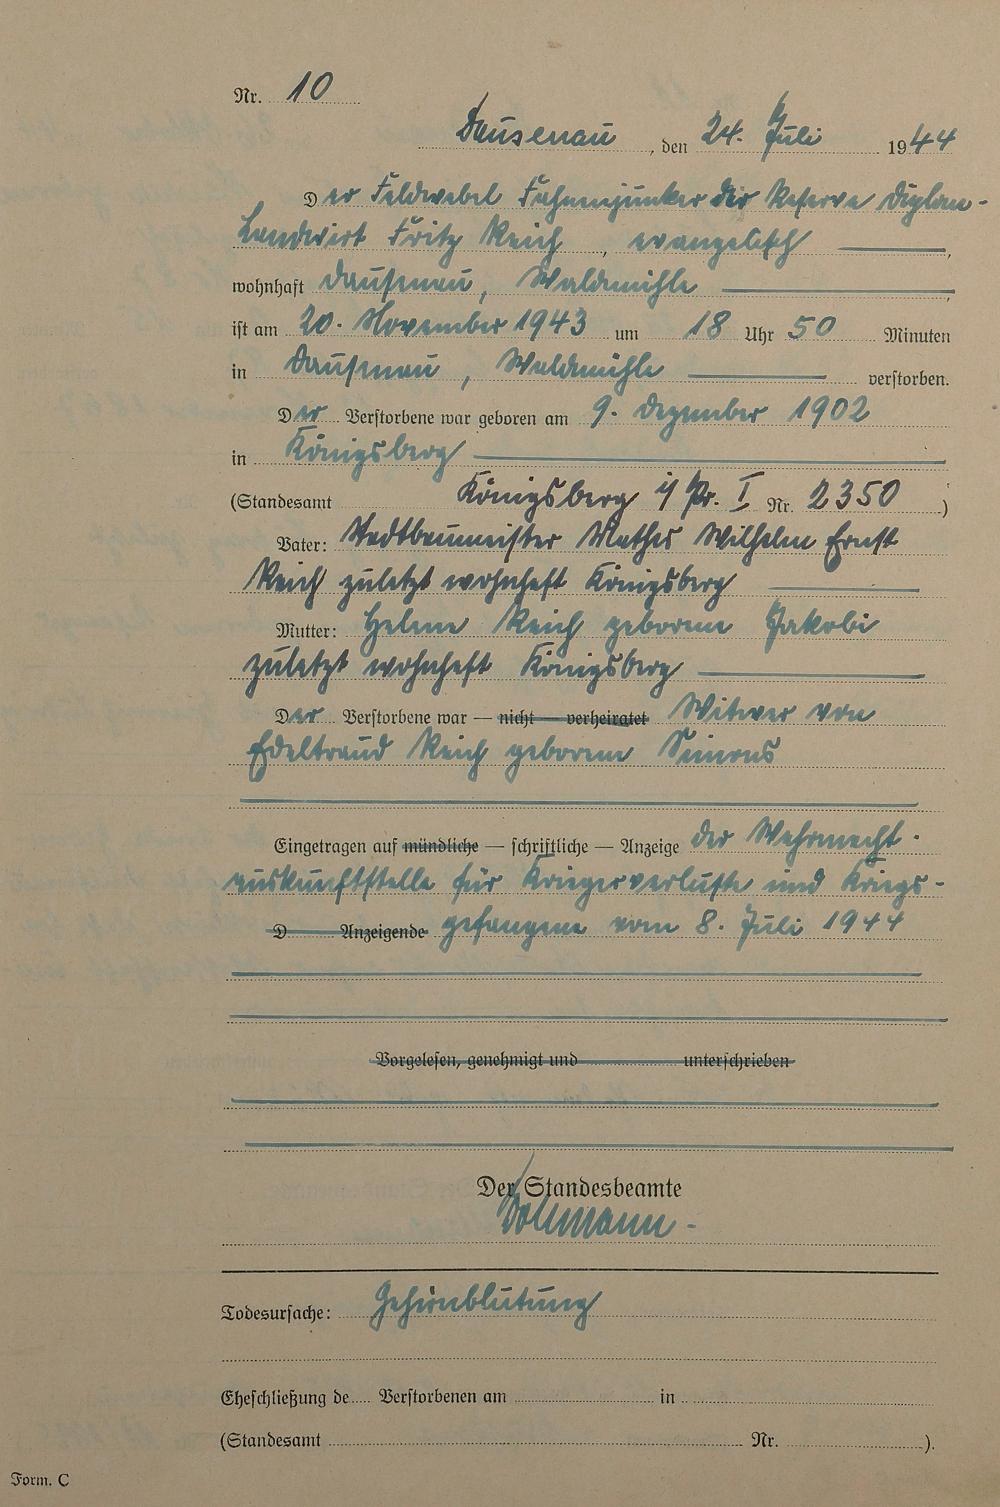 Nr. 10
Dausenau, den 24. Juli 1944
Der Feldwebel Fahnenjunker der Reserve Diplom-
Landwirt Fritz Reich, evangelisch
wohnhaft Dausenau, Waldmühle
ist am 20. November 1943 um 18 Uhr 50 Minuten
in Dausenau, Waldmühle verstorben.
Der Verstorbene war geboren am 9. Dezember 1902
in Königsberg
(Standesamt Königsberg i/Pr. I Nr. 2350)
Vater: Stadtbaumeister Mathes Wilhelm Ernst
Reich zuletzt wohnhaft Königsberg
Mutter: Helene Reich geborene Jakobi
zuletzt wohnhaft Königsberg
Der Verstorbene war — nicht — verheiratet Witwer von
Edeltraud Reich geborene Simons
Eingetragen auf mündliche — schriftliche — Anzeige der Wehrmacht-
auskunftstelle für Kriegerverluste und Kriegs-
D Anzeigende gefangene vom 8. Juli 1944
Vorgelesen, genehmigt und unterschrieben
Der Standesbeamte
Todesursache: Gehirnblutung
Eheschließung de Verstorbenen am in
(Standesamt Nr. ).
Form. C